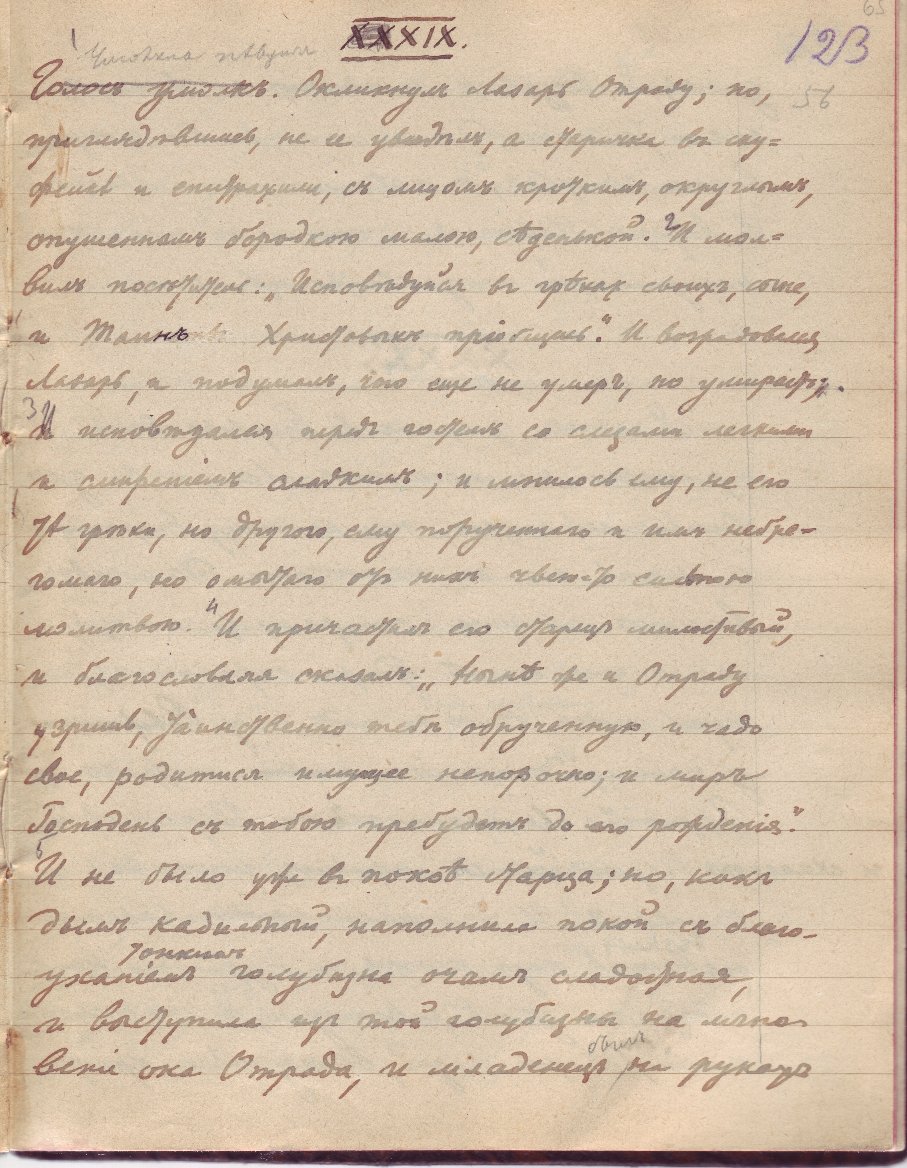 65
XXXIX.
123
1 Умолкла пѣвунья
Голосъ умолкъ. Окликнулъ Лазарь Отраду; но,
56
приглядѣвшись, не ее увидѣлъ, а старичка въ ску=
фейкѣ и епитрахили, съ лицомъ кроткимъ, округлымъ,
опушеннымъ бородкою малою, сѣденькой. 2 И мол=
вилъ посѣтитель: „Исповѣдуйся въ грѣхахъ своихъ, сыне,
и Таинъ Христовыхъ пріобщись“. И возрадовался
Лазарь, и подумалъ, что еще не умеръ, но умираетъ.
3 И исповѣдался передъ гостемъ со слезами легкими
и смиреніемъ сладкимъ; и мнилось ему, не его
тѣ грѣхи, но другого, ему порученнаго и имъ небре-
гомаго, но омытаго отъ нихъ чьею-то силою
молитвою. 4 И причастилъ его старецъ милостивый,
и благословляя сказалъ: „Нынѣ же и Отраду
узришь, таинственно тебѣ обрученную, и чадо
свое, родитися имущее непорочно; и миръ
Господень съ тобою пребудетъ до его рожденія“.
5 И не было уже въ покоѣ старца; но, какъ
дымъ кадильный, наполнила покой съ благо-
тонкимъ
уханіемъ голубизна очамъ сладостная,
и выступила изъ той голубизны на мгно-
былъ
веніе ока Отрада, и младенецъ на рукахъ